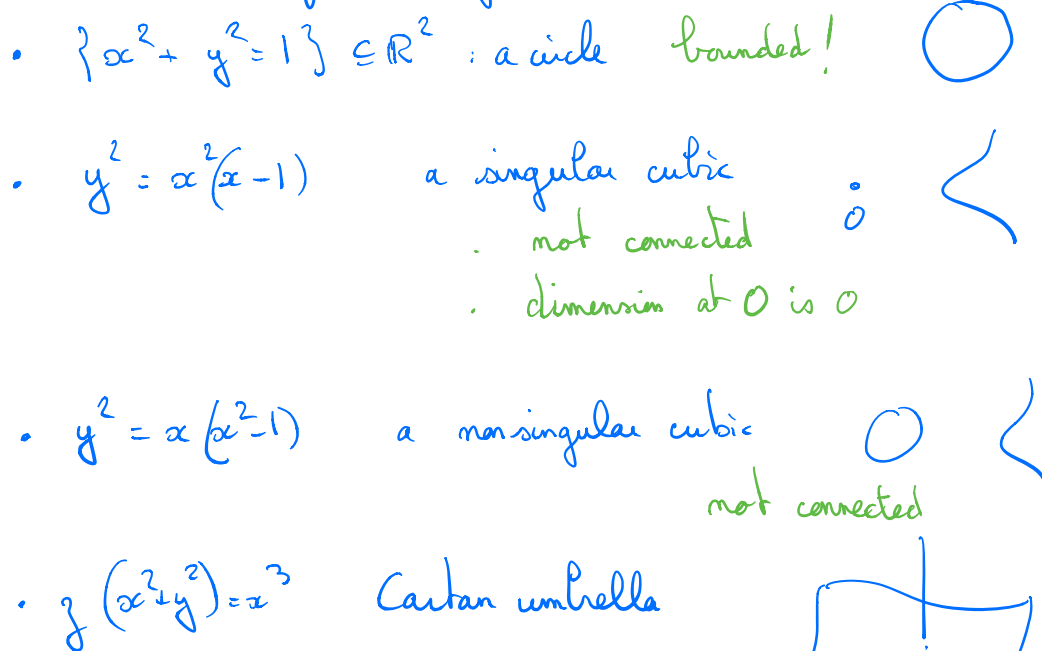 • {x² + y² = 1} ⊆ ℝ² : a circle bounded!
• y² = x²(x-1) a singular cubic
0
. not connected
. dimension at 0 is 0
• y² = x(x²-1) a nonsingular cubic
not connected
• z(x²+y²) = x³ Cartan umbrella